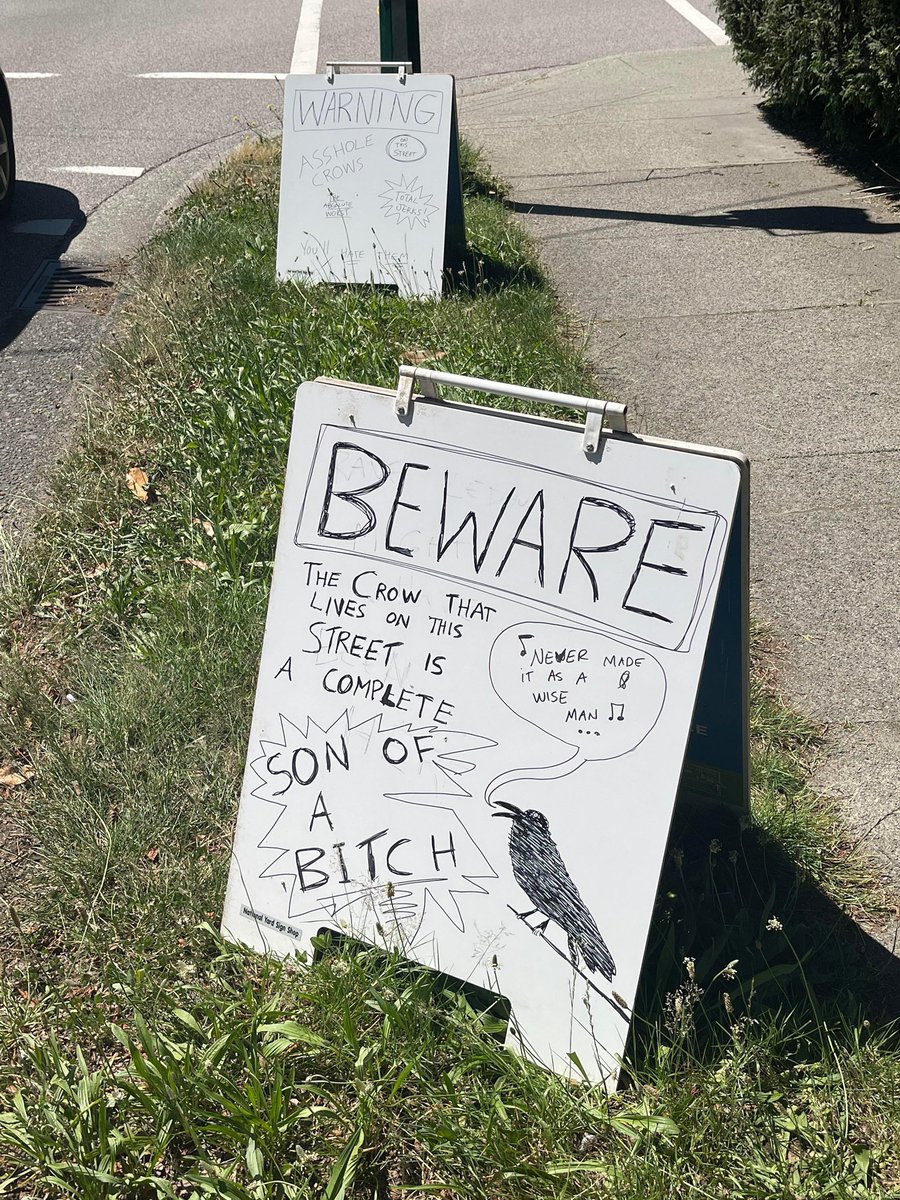 WARNING
ASSHOLE
CROWS
ON
THIS
STREET
THE
ABSOLUTE
WORST
TOTAL
JERKS!
YOU'LL HATE THEM
BEWARE
THE CROW THAT
LIVES ON THIS
STREET IS
A COMPLETE
SON OF
A
BITCH
♪ NEVER MADE
IT AS A
WISE
MAN ♫
...
National Yard Sign Shop